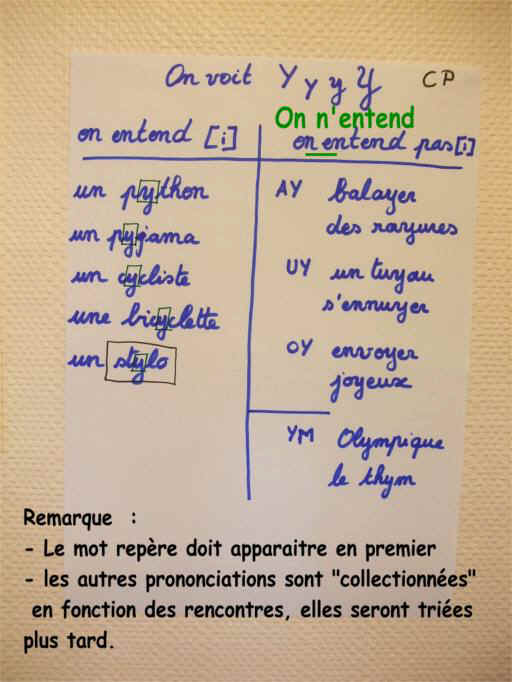 On voit Y y y Y
CP
On n'entend
on entend [i]
on entend pas [i]
un python
un pyjama
un cycliste
une bicyclette
un stylo
AY balayer
des rayures
UY un tuyau
s'ennuyer
OY envoyer
joyeux
YM Olympique
le thym
Remarque :
- Le mot repère doit apparaitre en premier
- les autres prononciations sont "collectionnées"
en fonction des rencontres, elles seront triées
plus tard.